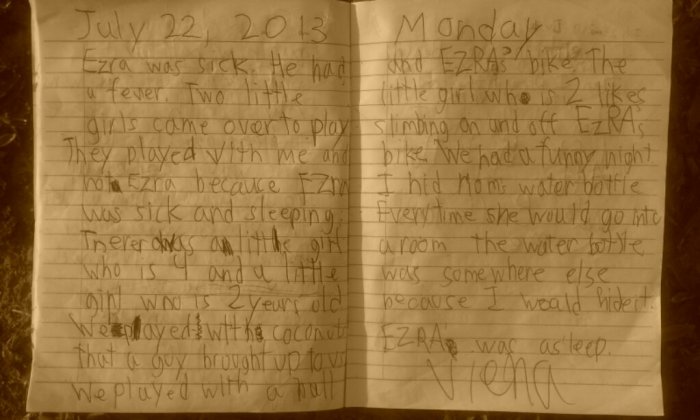 July 22, 2013
Ezra was sick. He had
a fever. Two little
girls came over to play
They played with me and
not Ezra because EZra
was sick and sleeping.
There was a little girl
who is 4 and a little
girl who is 2 years old
We played with coconuts
that a guy brought up to us
we played with a ball
Monday
and EZRA's bike The
little girl who is 2 likes
slimbing on and off EZRA's
bike. We had a funny night
I hid Moms water bottle
Every time she would go into
a room the water bottle
was somewhere else
because I would hide it.
EZRA was asleep.
Viena